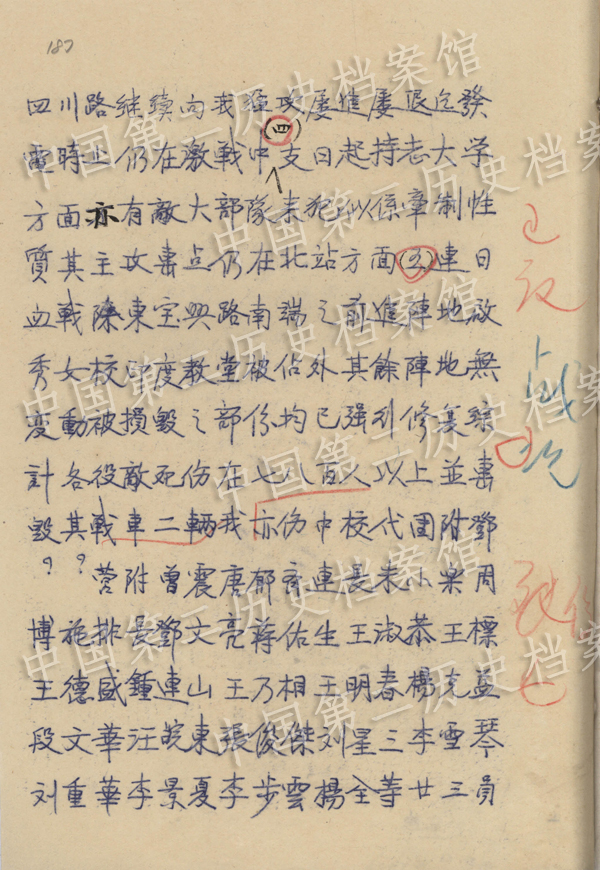 187
四川路继續向我猛攻屡進屡退迄發
電時止仍在激戰中(四)支日起持志大学
方面亦有敵大部隊来犯似係牽制性
質其主攻重点仍在北站方面(五)連日
血戰除東宝興路南端之前進陣地啟
秀女校印度教堂被佔外其餘陣地無
変動被損毀之部份均已强行修葺綜
計各役敵死伤在七八百人以上並
毀其戰車二輛我亦伤中校代團附鄧
??营附曾震唐郁齐連長朱小樂周
博施排長鄧文亮蒋佑生王淑恭王標
王德盛鍾連山王乃相王明春楊克益
段文華汪皖東張俊傑刘星三李雪琴
刘重華李景夏李步雲楊全等廿三員
中国第二历史档案馆